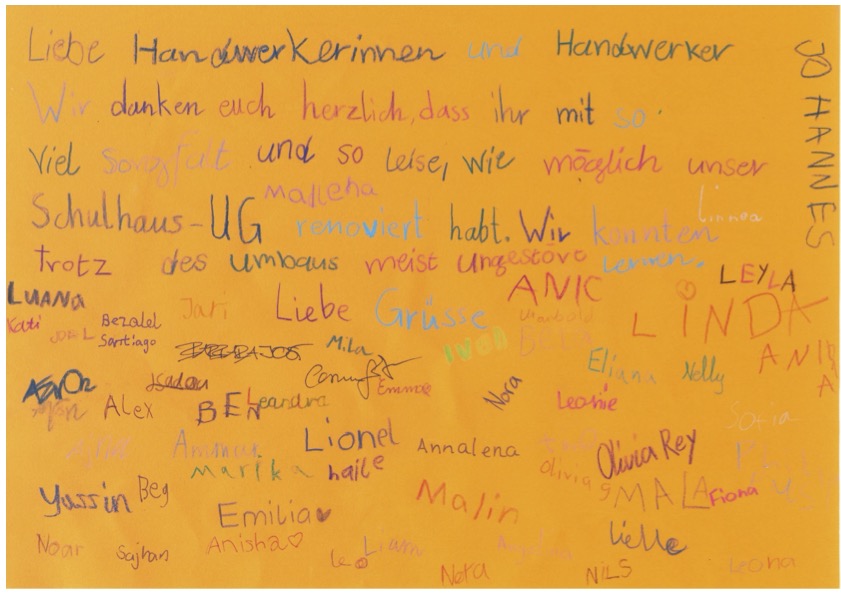 Liebe Handwerkerinnen und Handwerker
JOHANNES
Wir danken euch herzlich, dass ihr mit so
viel Sorgfalt und so leise, wie möglich unser
Mallena
Schulhaus-UG renoviert habt. Wir konnten
Linnea
trotz des umbaus meist ungestöro Lernen.
LUANA
Liebe Grüsse
ANIC
LEYLA
Kati
JOEL
Bezalel
Santiago
Jari
LINDA
Mila
Eliana
Nelly
Emma
Nora
Leonie
Alex
BEN
Leandra
Sofia
Ammar
Lionel
Annalena
Olivia Rey
Marika
haile
Olivia S
MALA
Fiona
Yassin
Beg
Malin
Emilia
Noar
Sajhan
Anisha
Leo
Liam
Lielle
Nora
NiLS
Leona